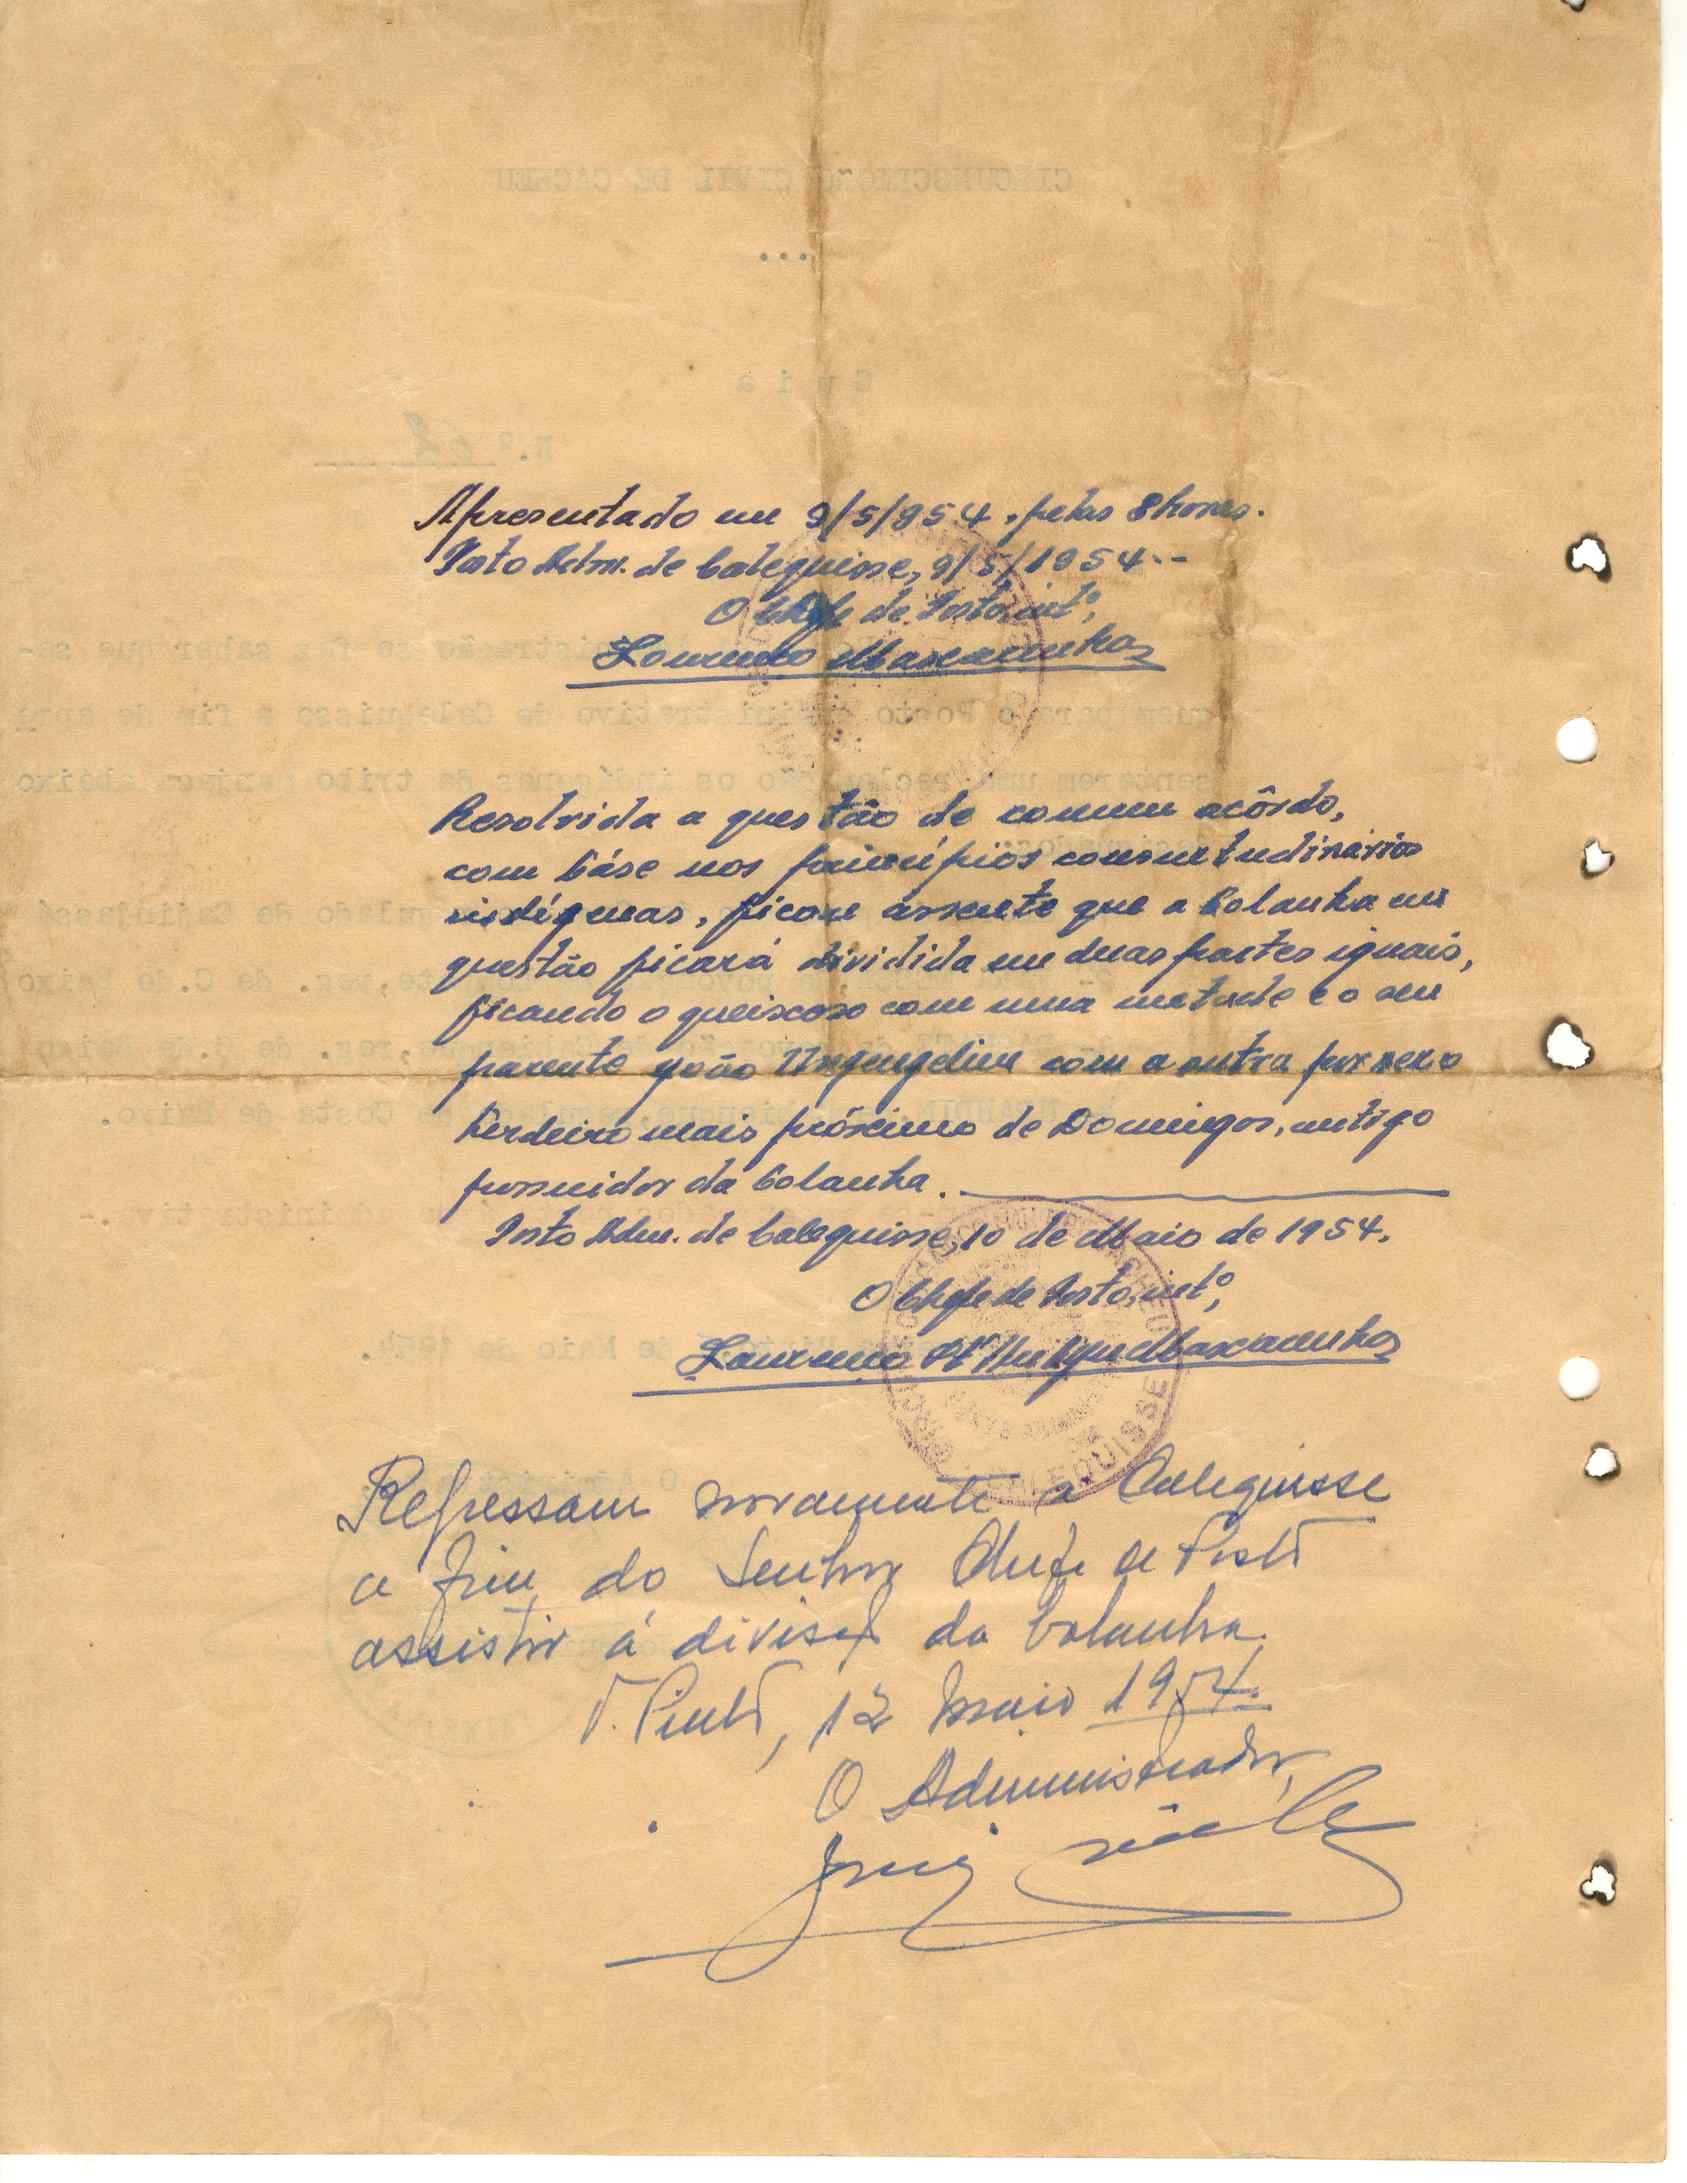 Apresentado em 9/5/954, pelas 8 horas.
Posto Adm. de Calequisse, 9/5/1954.-
O Chefe de Posto, intº,
Lourenço Mascarenhas
Resolvida a questão de comum acôrdo,
com báse nos princípios consuetudinários
indígenas, ficou assente que a bolanha em
questão ficará dividida em duas partes iguais,
ficando o queixoso com uma metade e o seu
parente João com a outra por ser o
herdeiro mais próximo de Domingos, antigo
possuidor da bolanha.
Posto Adm. de Calequisse, 10 de Maio de 1954.
O Chefe de Posto, intº,
Lourenço Mascarenhas
CALEQUISSE
Regressam novamente a Calequisse
a fim do Senhor Chefe de Posto
assistir á divisão da bolanha.
T. Pinto, 12 Maio 1954.
O Administrador,